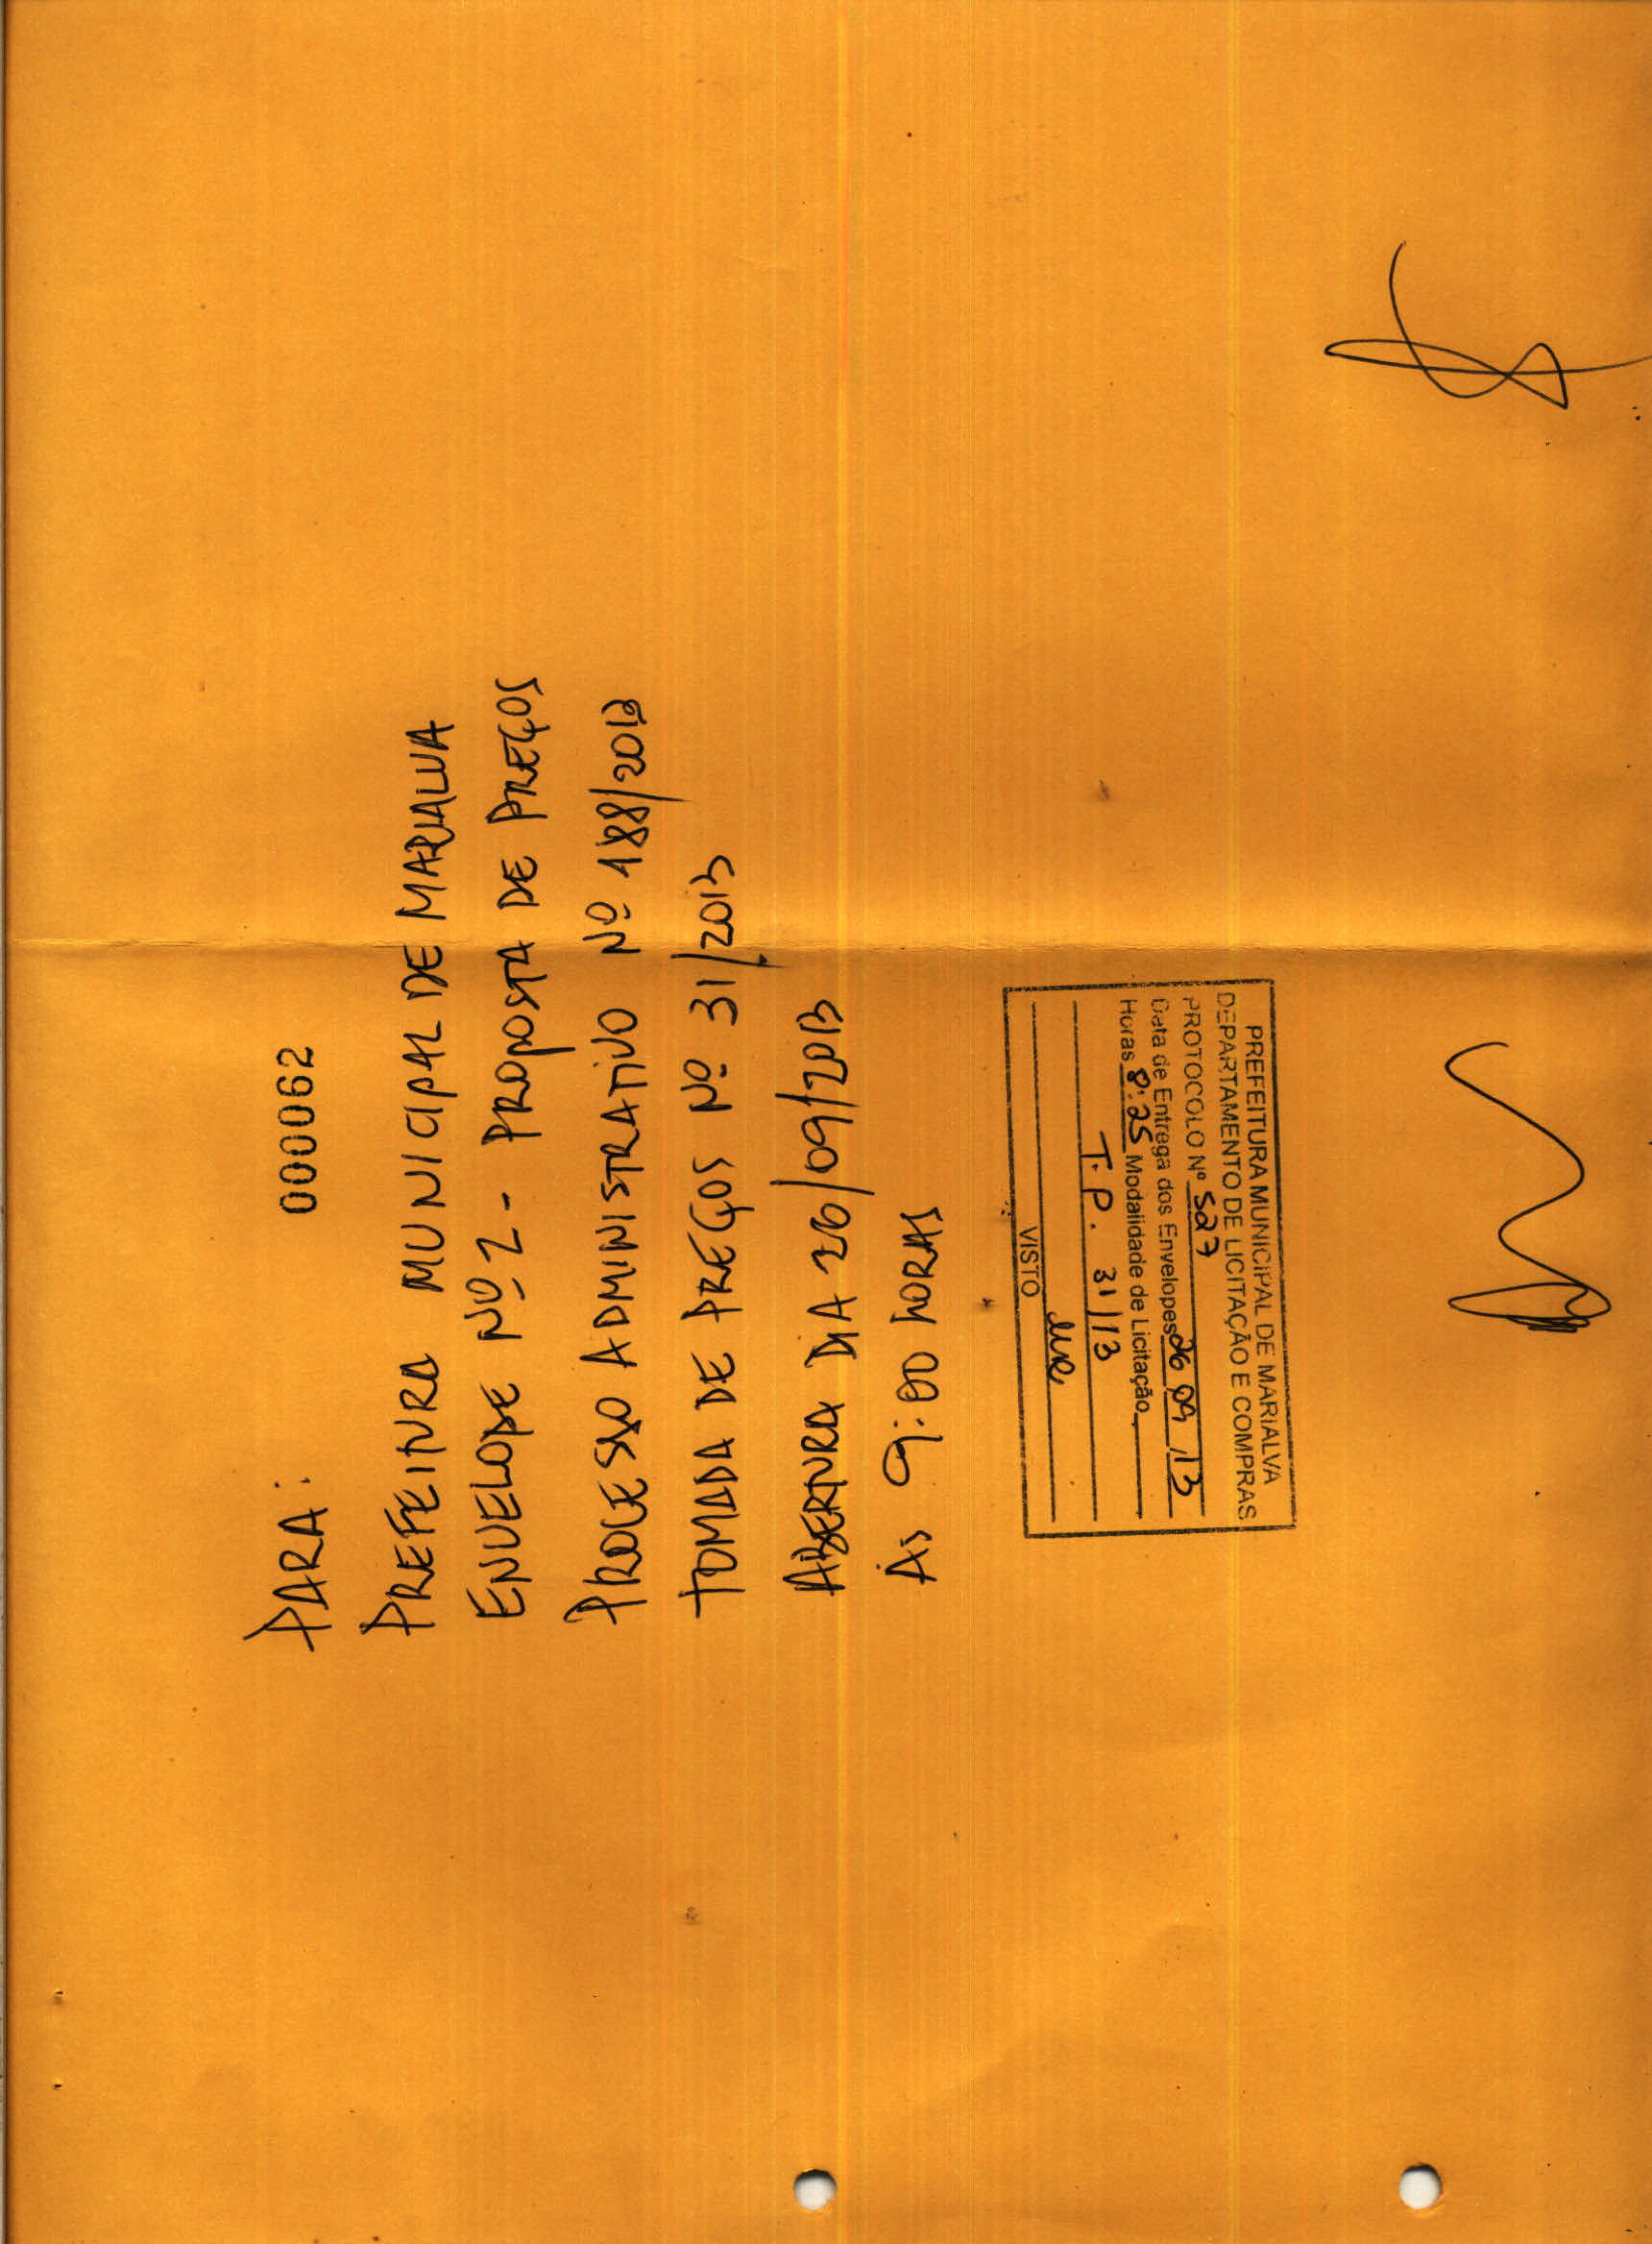 000062
PARA:
PREFEITURA MUNICIPAL DE MARIALVA
ENVELOPE Nº 2 - PROPOSTA DE PREÇOS
PROCESSO ADMINISTRATIVO Nº 188/2012
TOMADA DE PREÇOS Nº 31/2013
ABERTURA DIA 26/09/2013
As 9:00 HORAS
PREFEITURA MUNICIPAL DE MARIALVA
DEPARTAMENTO DE LICITAÇÃO E COMPRAS
PROTOCOLO Nº 527
Data de Entrega dos Envelopes 26 09 13
Horas 8:25 Modalidade de Licitação
T.P. 31/13
VISTO